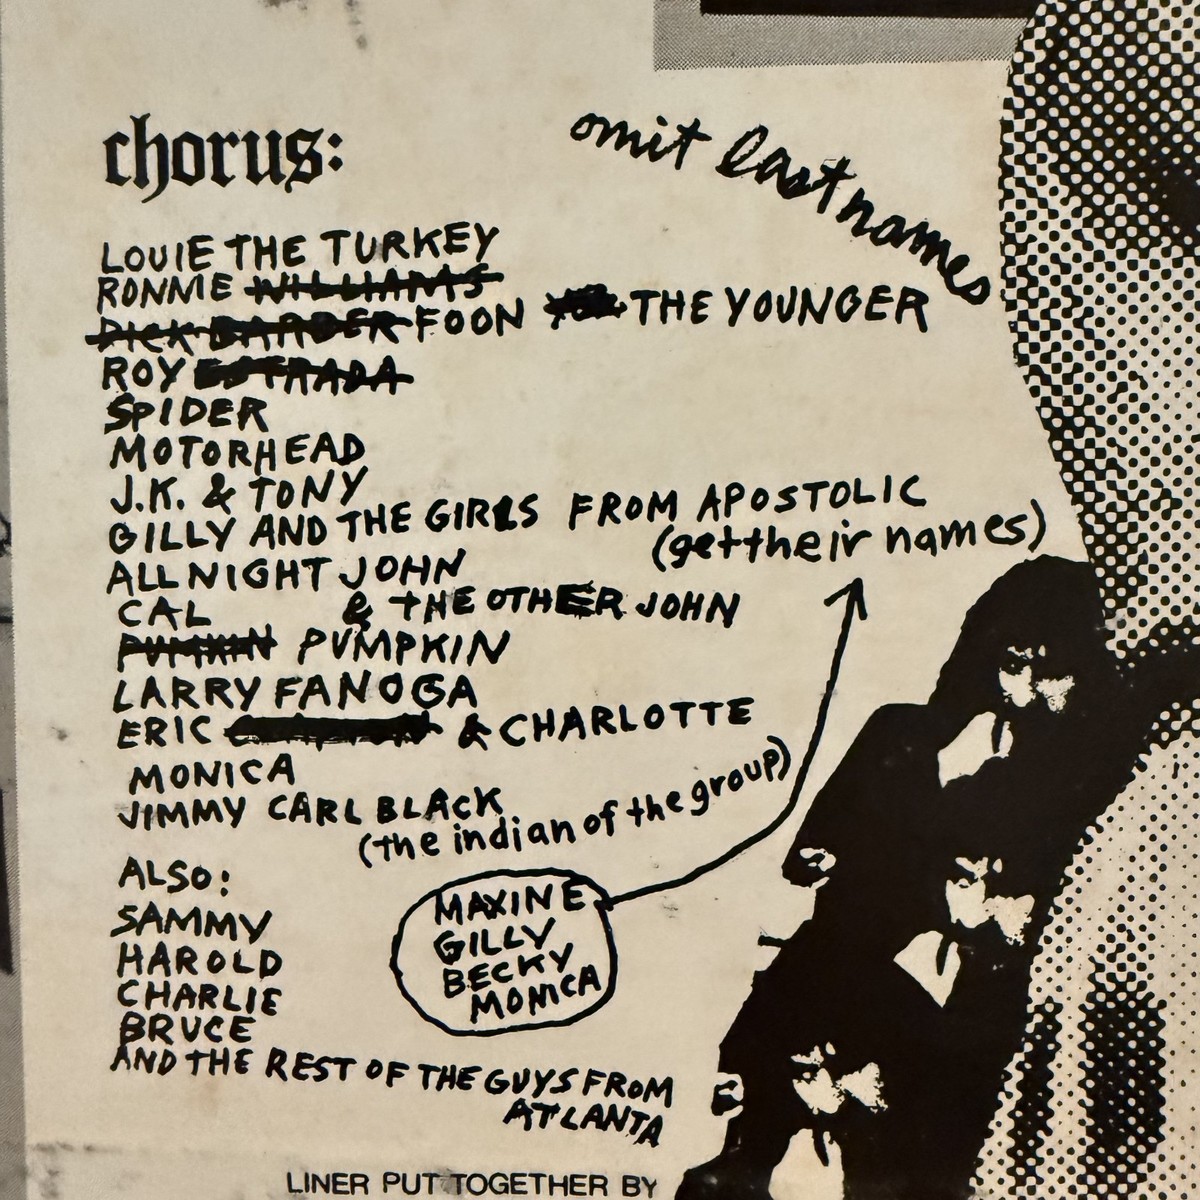 chorus:
omit last names
LOUIE THE TURKEY
RONNIE WILLIAMS
DICK BARBER FOON THE YOUNGER
ROY ESTRADA
SPIDER
MOTORHEAD
J.K. & TONY
GILLY AND THE GIRLS FROM APOSTOLIC
(get their names)
ALL NIGHT JOHN
& THE OTHER JOHN
CAL
PUMPKIN
LARRY FANOGA
ERIC & CHARLOTTE
MONICA
JIMMY CARL BLACK
(the indian of the group)
ALSO:
SAMMY
HAROLD
CHARLIE
BRUCE
AND THE REST OF THE GUYS FROM
ATLANTA
MAXINE
GILLY
BECKY
MONICA
LINER PUT TOGETHER BY